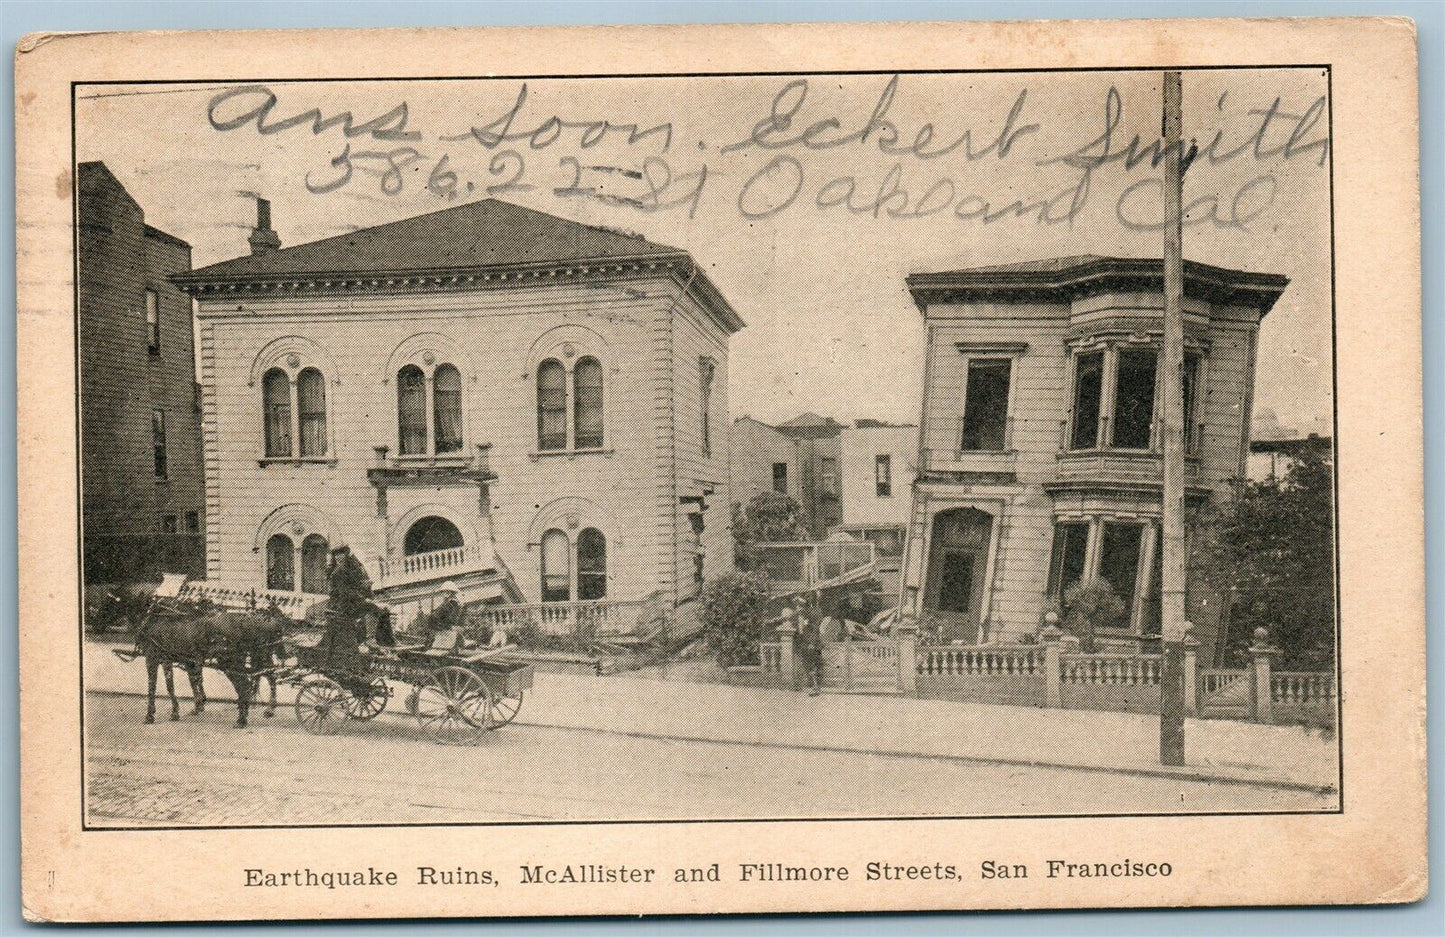 Ans Soon. Eckert Smith
586.22 St Oakland Cal
Earthquake Ruins, McAllister and Fillmore Streets, San Francisco